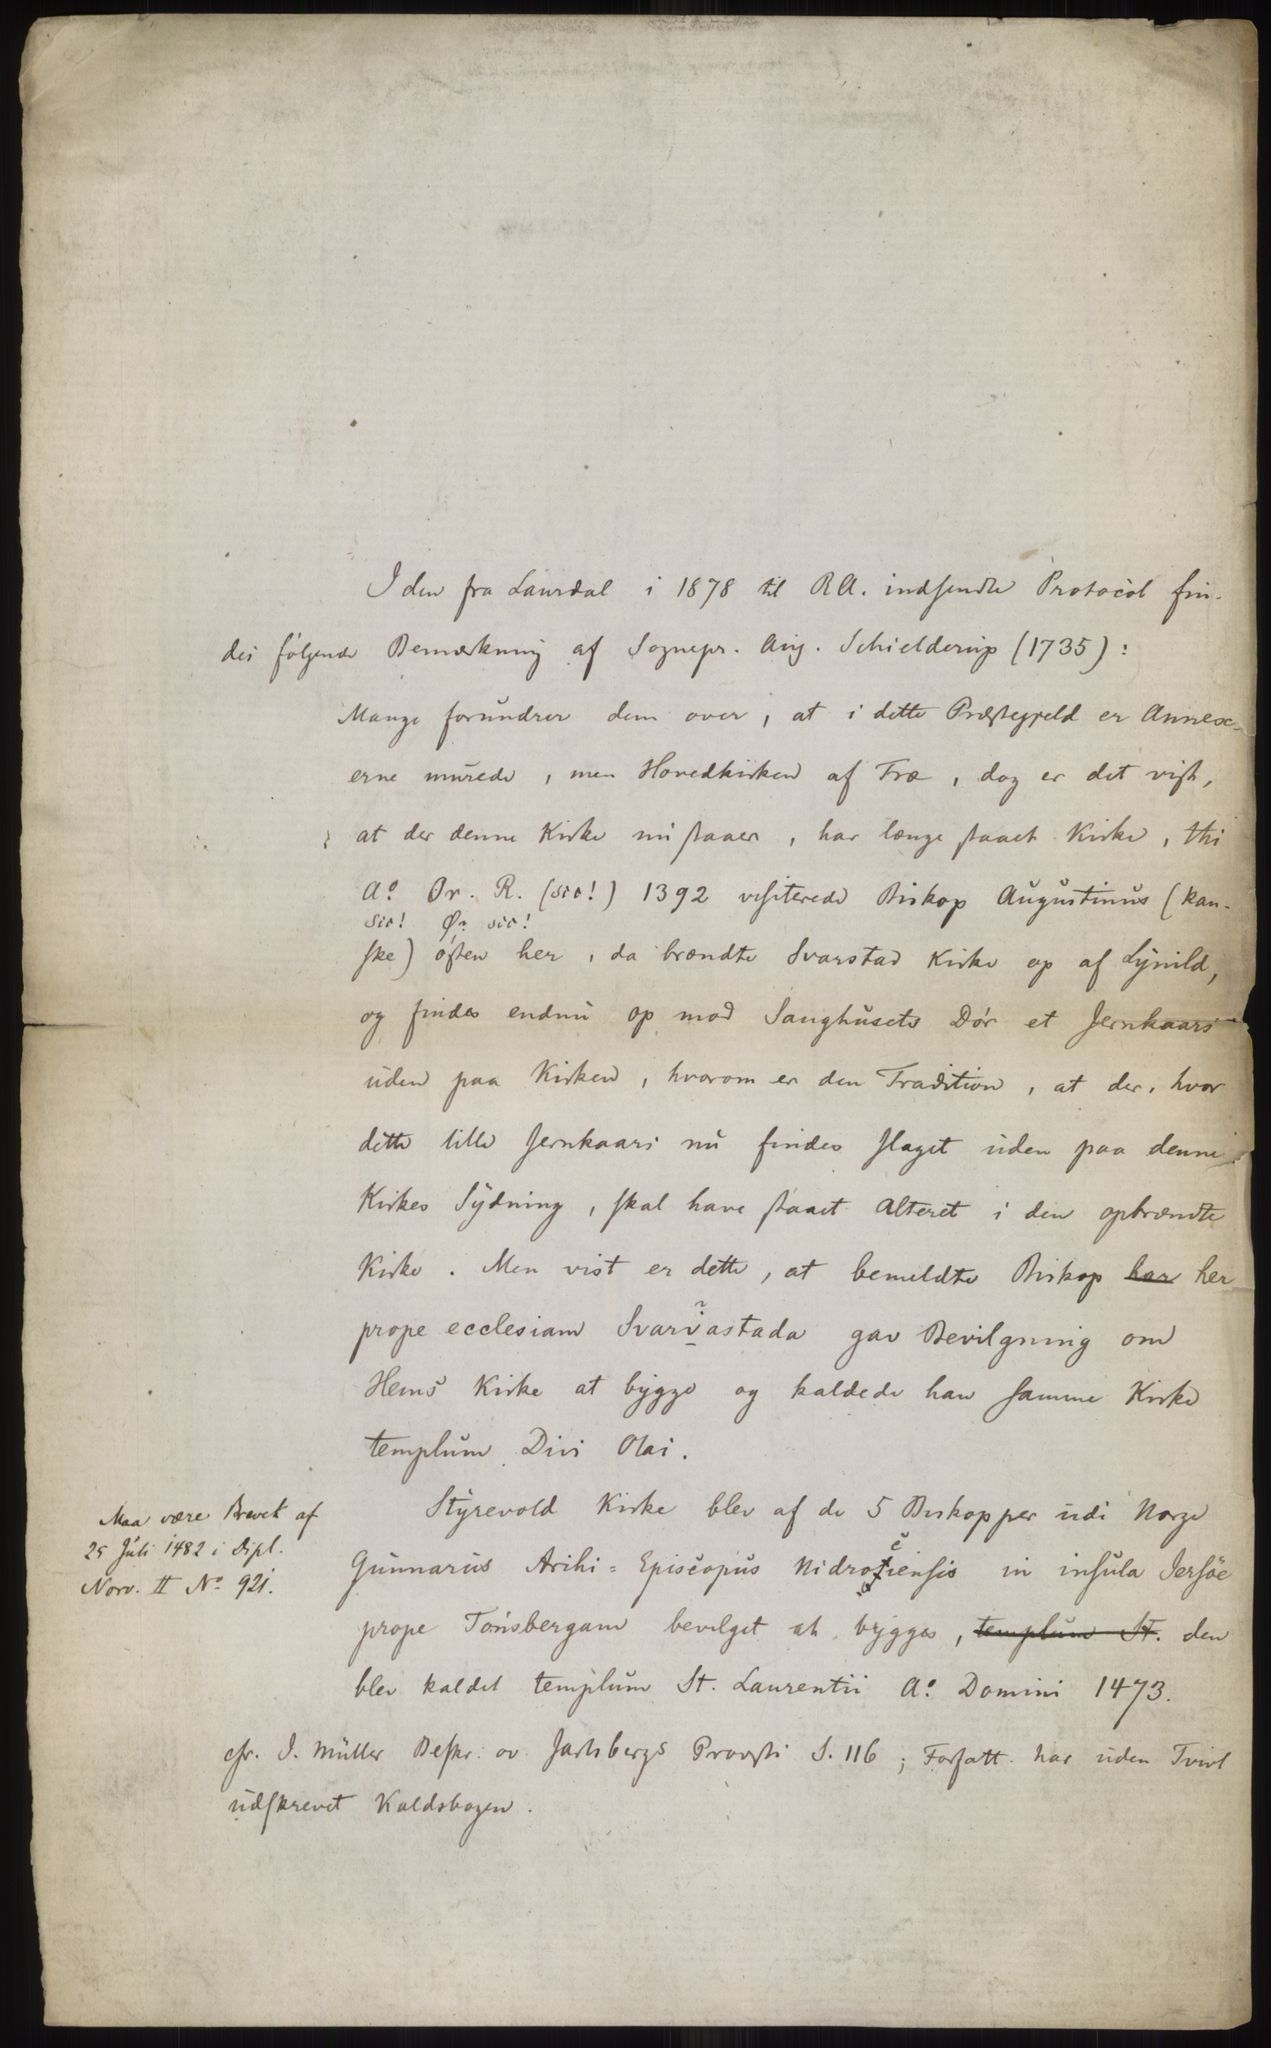 I den fra Laurdal i 1878 til RA. indsendte Protocol fin-
des følgende Bemærkning af Sognepr. Aug. Schielderup (1735):
Mange forundrer dem over, at i dette Præstegjeld er Annexe-
erne murede, men Hovedkirken af Træ, dog er det vist,
at der denne Kirke nu staaer, har længe staaet Kirke, thi
Aº Or. R. (sic!) 1392 visiterede Biskop Augustinus (kan-
sic! Ør sic!
ske) østen her, da brændte Svarstad Kirke op af Lynild,
og findes endnu op mod Sanghusets Dør et Jernkaars
uden paa Kirken, hvorom er den Tradition, at der, hvor
dette lille Jernkaars nu findes slaget uden paa denne
Kirkes Sydning, skal have staaet Alteret i den opbrændte
Kirke. Men vist er dette, at bemeldte Biskop har her
prope ecclesiam Svarvastada gav Bevilgning om
?
Hems Kirke at bygge og kaldede han samme Kirke
templum Divi Olai.
Styrevold Kirke blev af de 5 Biskopper udi Norge
Gunnarus Archi=Episcopus Nidrosiensis in insula Jersøe
prope Tønsbergam bevilget at bygges, templum St. den
blev kaldet templum St. Laurentii Aº. Domini 1473.
Maa være Brevet af
25 Juli 1482 i Dipl.
Norv. II Nº 921.
cfr. I. Müller Beskr. ov. Jarlsbergs Provsti S. 116; Forfatt. har uden Tvivl
udskrevet Kaldsbogen.